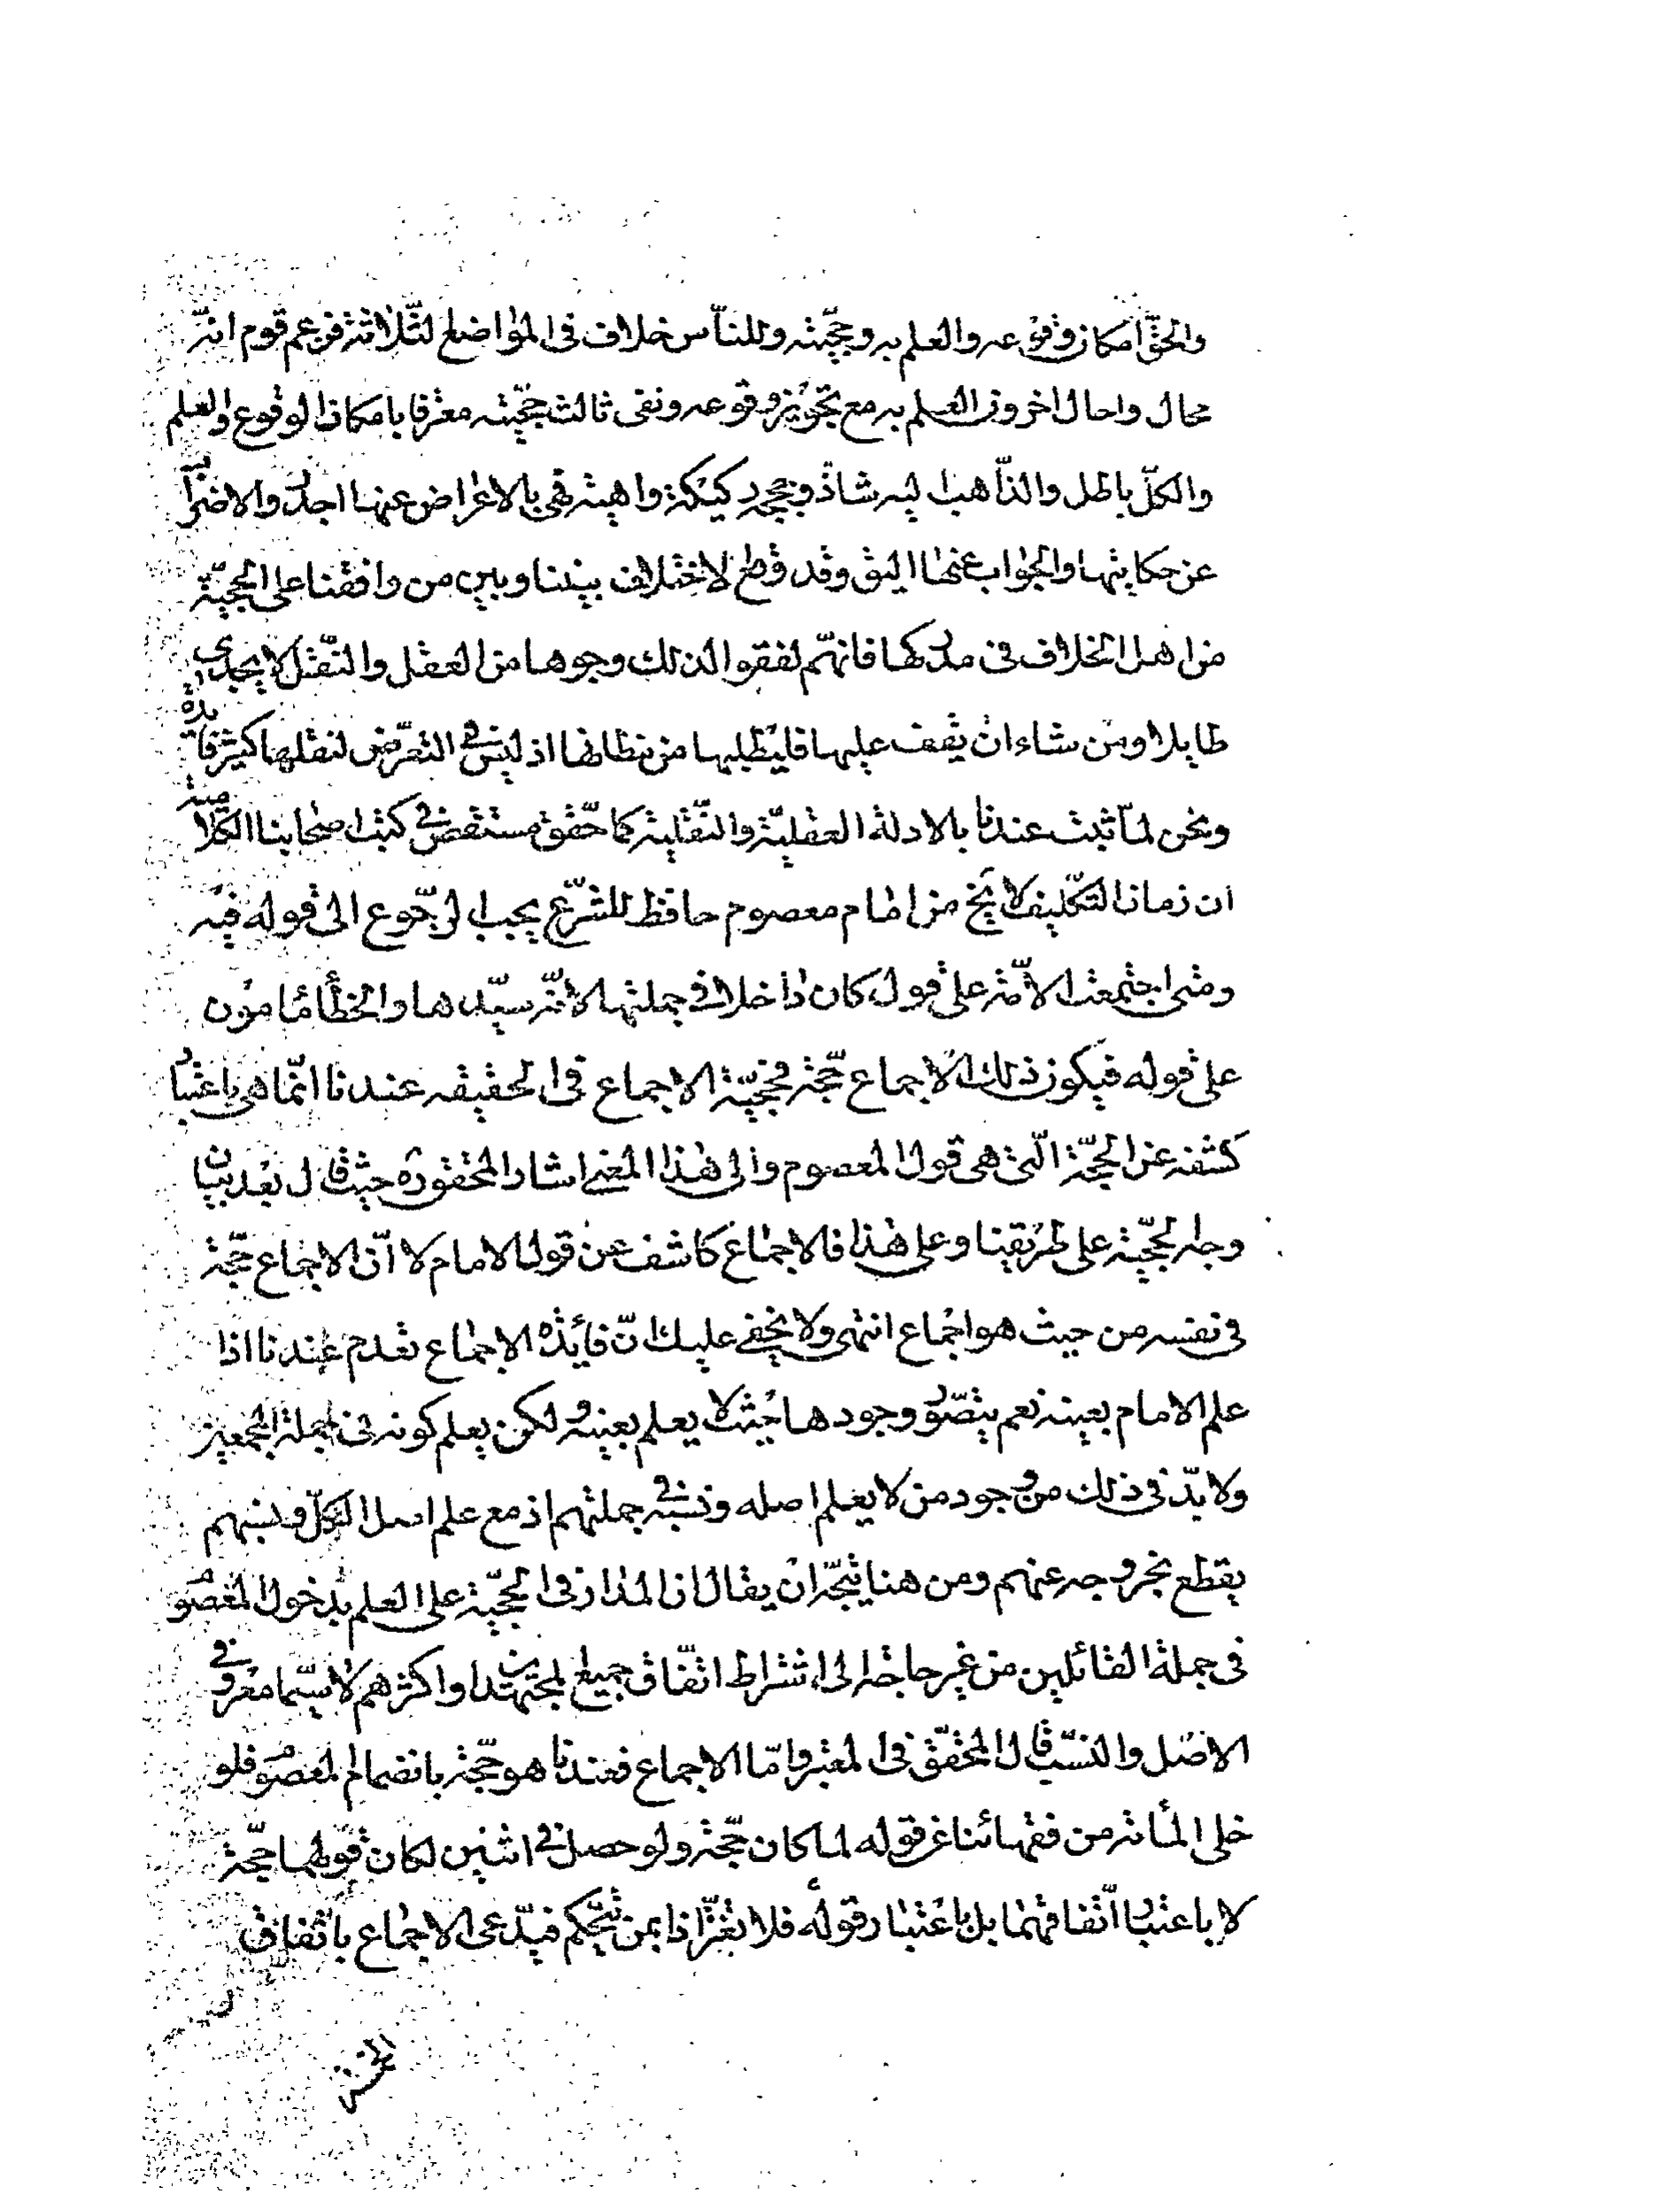 والحقّ امكان وقوعه والعلم به وحجّيّته وللنّاس خلاف فى المواضع الثّلاثة فزعم قوم انّه
محال واحال اخرون العلم به مع تجويز وقوعه ونفى ثالث حجّيّته معترفا بامكان الوقوع والعلم به
والكلّ باطل والذّاهب اليه شاذّ وحججه ركيكة واهية فهى بالاعراض عنها اجدر والاضراب
عن حكايتها والجواب عنها اليق وقد وقع الاختلاف بيننا وبين من وافقنا على الحجيّة
من اهل الخلاف فى مدركها فانهّم لفقوا لذلك وجوها من العقل والنّقل لا يجدى
طايلا ومن شاء ان يقف عليها فليطلبها من مظانها اذ ليس فى التعرّض لنقلها كثير فايدة
ونحن لمّا ثبت عندنا بالادلة العقليّة والنّقلية كما حقّق مستقصى فى كتب اصحابنا الكلامية
ان زمان التّكليف لا يخ من امام معصوم حافظ للشّرع يجب الرّجوع الى قوله فيه
ومتى اجتمعت الامّة على قول كان داخلا فى جملتها لانّه سيّدها والخطأ مامون
على قوله فيكون ذلك الاجماع حجّة فحجيّة الاجماع فى الحقيقه عندنا انّما هى باعتبار
كشفه عن الحجّة الّتى هى قول المعصوم والى هذا المعنى اشار المحقق ره حيث قال بعد بيان
وجه الحجّية على طريقنا وعلى هذا فالاجماع كاشف عن قول الامام لا انّ الاجماع حجّة
فى نفسه من حيث هو اجماع انتهى ولا يخفى عليك انّ فايدة الاجماع تعدم عندنا اذا
علم الامام بعينه نعم يتصّور وجودها حيث لا يعلم بعينه ولكن يعلم كونه فى جملة المجمعين
ولا بدّ فى ذلك من وجود من لا يعلم اصله ونسبه فى جملتهم اذ مع علم اصل الكلّ ونسبهم
يقطع بخروجه عنهم ومن هنا يتّجه ان يقال ان المدار فى الحجّية على العلم بدخول المعصوم
فى جملة القائلين من غير حاجة الى اشتراط اتّفاق جميع المجتهدين او اكثرهم لا سيّما معروفى
الاصل والنسب قال المحقّق فى المعتبر وامّا الاجماع فعندنا هو حجّة بانضمام المعصوم فلو
خلى المأة من فقهائنا عن قوله لما كان حجّة ولو حصل فى اثنين لكان قولهما حجّة
لا باعتبار اتّفاقهما بل باعتبار قوله فلا تغترّ اذا بمن يتحّكم فيدّعى الاجماع باتّفاق